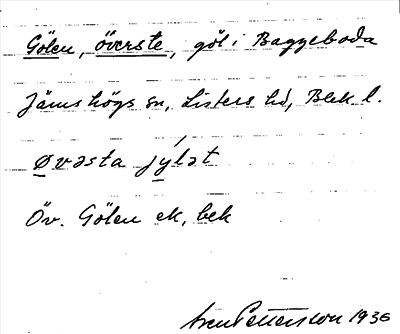 Gölen, överste, göl i Baggeboda
Jämshögs sn, Listers hd, Blek l.
øvəsta jýlət
Öv. Gölen ek, bek
Pettersson 1936